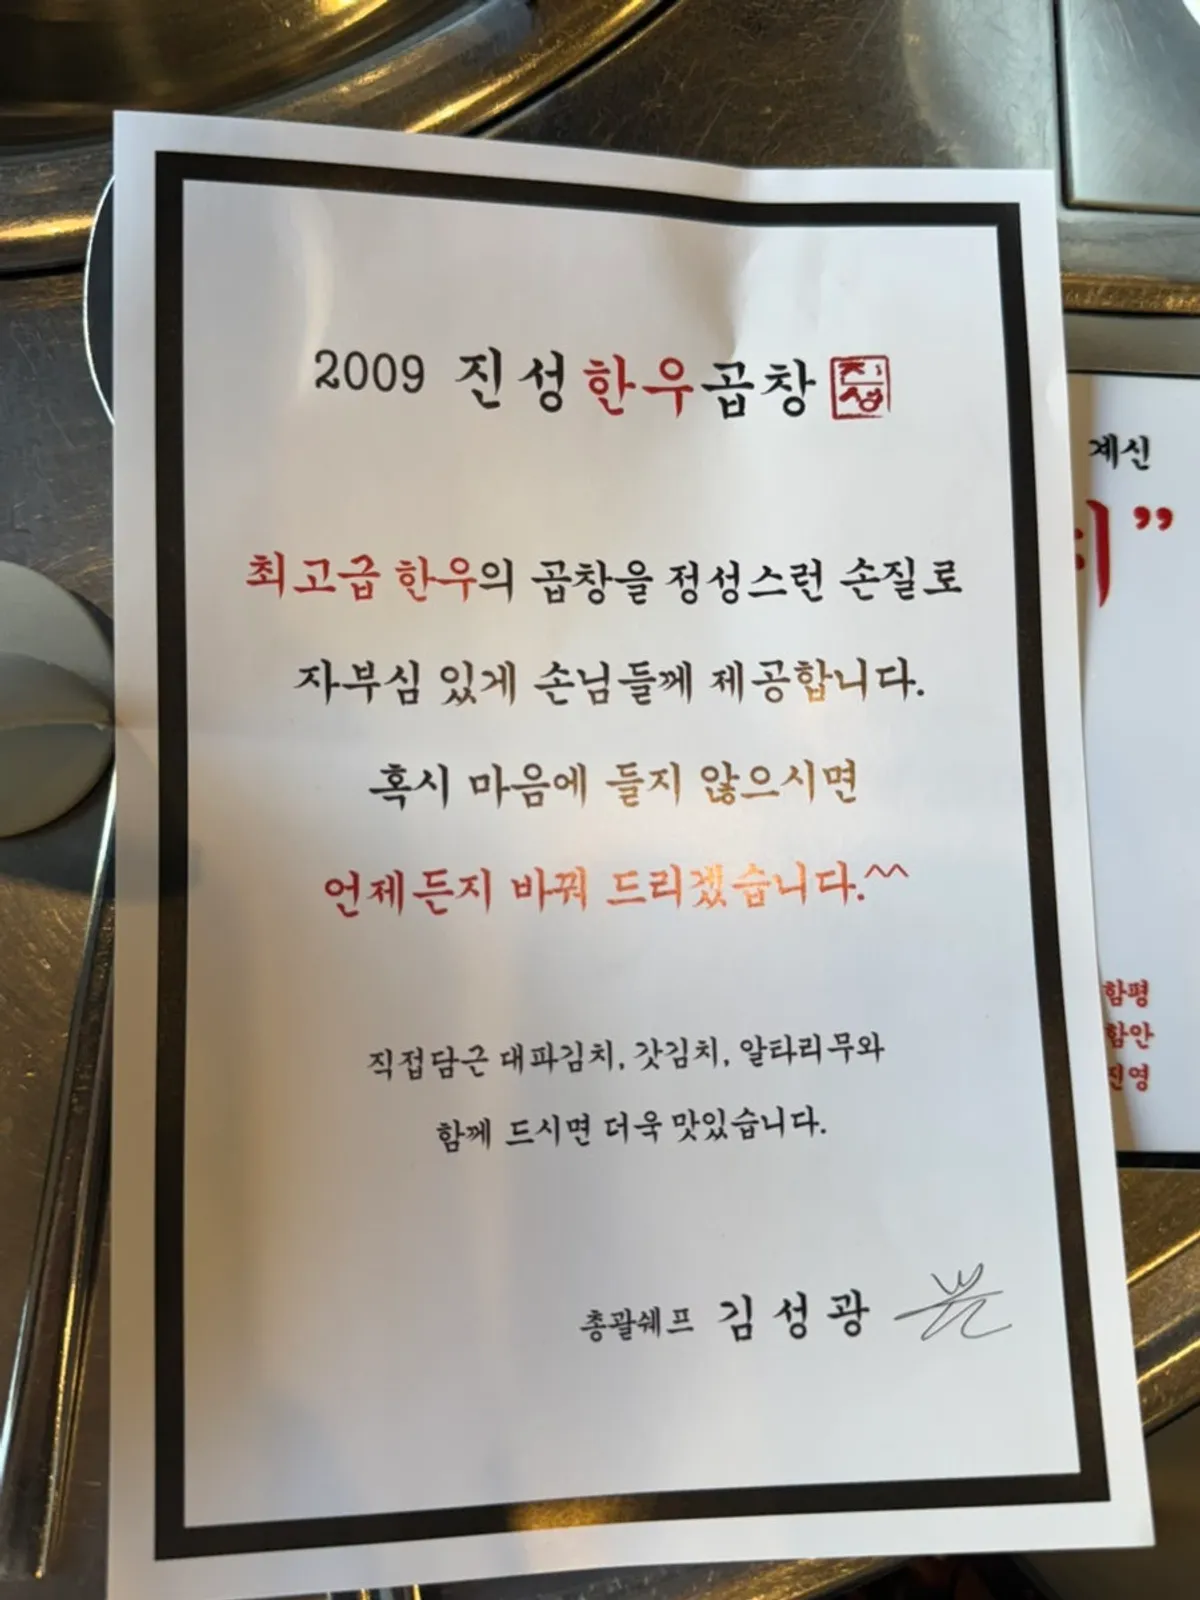 2009 진성한우곱창 진성
최고급 한우의 곱창을 정성스런 손질로
자부심 있게 손님들께 제공합니다.
혹시 마음에 들지 않으시면
언제든지 바꿔 드리겠습니다.^^
직접담근 대파김치, 갓김치, 알타리무와
함께 드시면 더욱 맛있습니다.
총괄쉐프 김성광
계신
”
함평
함안
진영